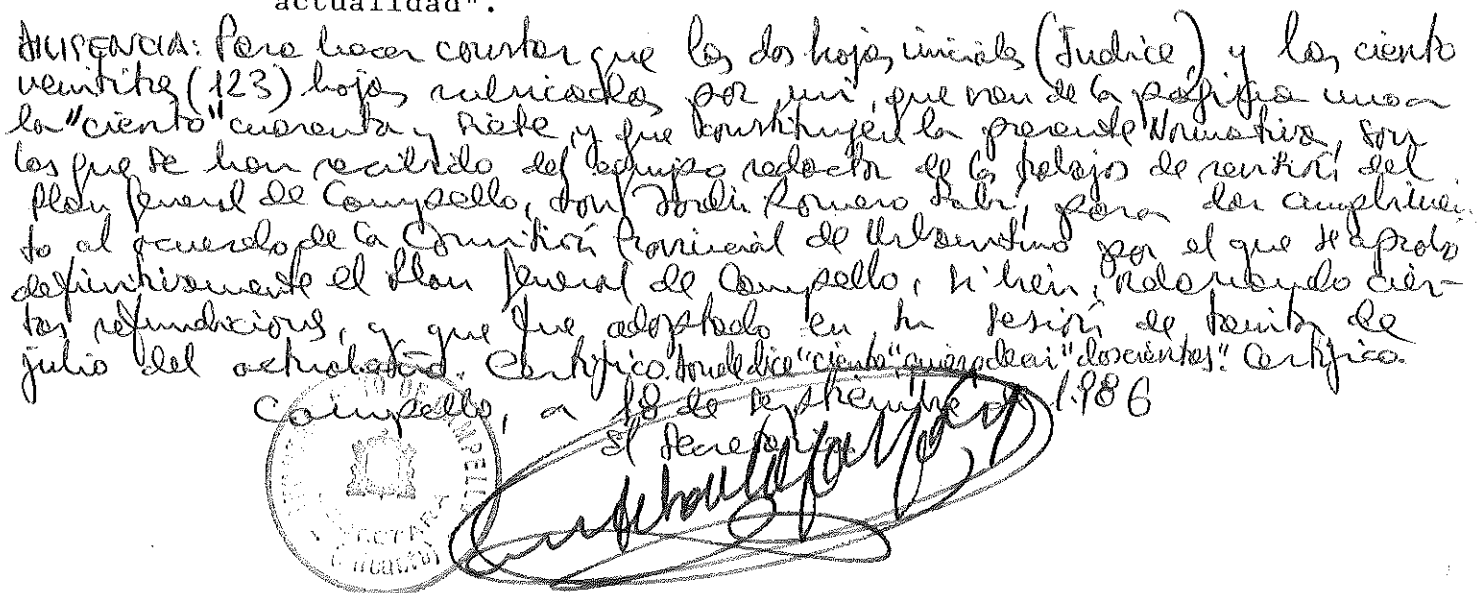 actualidad".
DILIGENCIA: Para hacer constar que las dos hojas iniciales (Índice) y las ciento
veintitrés (123) hojas rubricadas por mi, que van de la página una a
la "ciento" cuarenta y siete, y que constituyen la presente Normativa, son
las que se han recibido del equipo redactor de los trabajos de revisión del
Plan General de Campello, don Jordi Romero, para dar cumplimien-
to al acuerdo de la Comisión Provincial de Urbanismo por el que se aprobó
definitivamente el Plan General de Campello, si bien, cier-
tas refundiciones, y que fue adoptado en su sesión de treinta de
julio del actual año. Certifico. Donde dice "ciento", quiere decir "doscientas". Certifico.
Campello, a 18 de septiembre de 1.986
El Secretario.